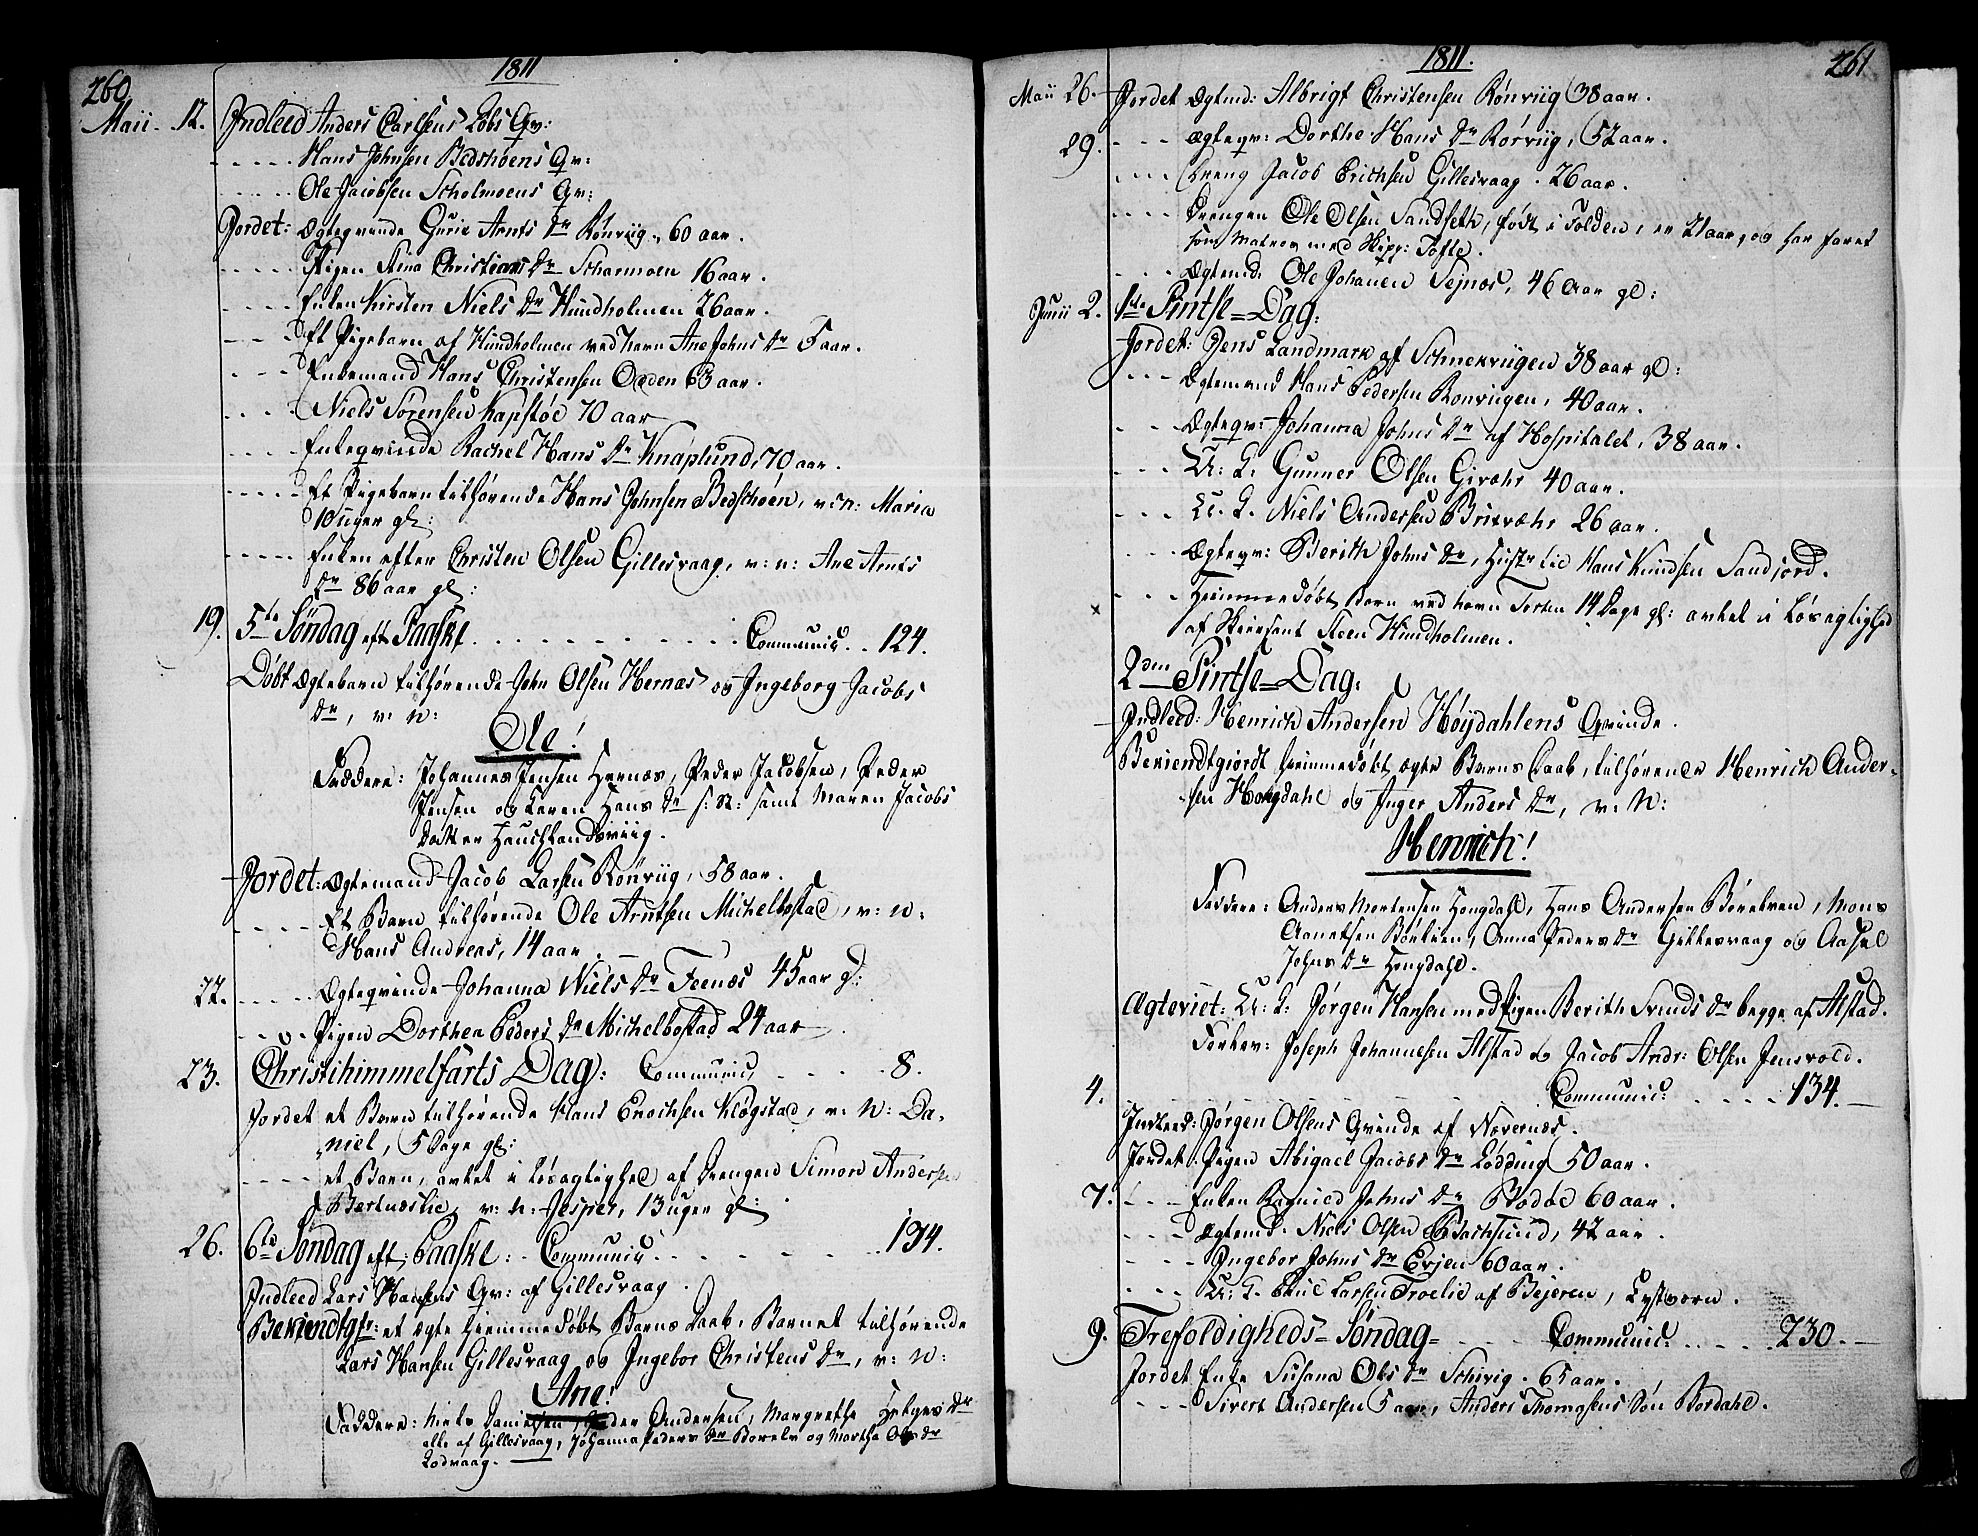 260
1811
Maii - 12. Indleed Anders Carlsens Løbs Qv:
- - - - - Hans Johnsen Bedshoens Qv:
- - - - - Ole Jacobsen Scholmoens Qv:
Jordet: Ægteqvinde Gurie Arnts Dr Rönviig, 60 aar.
- - - - - Pigen Stina Christians Dr Scharmoen 16 aar.
- - - - Enken Kirsten Niels Dr Hundholmen 26 aar.
- - - Et Pigebarn af Hundholmen ved navn Ane Johns Dr 5 aar.
- - - Enkemand Hans Christensen Oxden 63 aar.
- - - - Niels Sörensen Kapstöe 70 aar
- - - - Enkeqvinde Rachel Hans Dr Knaplund, 70 aar.
- - - - - Et Pigebarn tilhørende Hans Johnsen Bedschöen, v: n: Maria
10 uger gl:
- - - - - Enken efter Christen Olsen Gillesvaag, v: n: Ane Arnts
Dr 86 aar gl:
19. 5te Søndag eft Paaske. - - - - - - - - Communic: . . 124.
Døbt Ægtebarn tilhørende John Olsen Hernæs og Ingeborg Jacobs
Dr, v: n:
Ole!
Faddere: Johannes Jensen Hernæs, Peder Jacobsen, Peder
Jensen og Karen Hans Dr s: st: samt Maren Jacobs
Datter
Jordet: Ægtemand Jacob Larsen Rönviig, 58 aar.
- - - - Et Barn tilhørende Ole Arntsen Michelbostad, v: n:
Hans Andreas, 14 aar.
22. - - - - Ægteqvinde Johanna Niels Dr Feenæs 45 aar gl:
- - - Pigen Dorthea Peders Dr Michelbostad 24 aar
23. Christihimmelfarts Dag: Communic: - - - - 8.
Jordet et Barn tilhørende Hans Enochsen Kløgstad, v: N: Da-
niel, 5 Dage gl:
- - - - et Barn, avlet i Løsagtighed af Drengen Simon Andersen
Bertnæslie, v: n: Jesper, 13 uger gl:
26. 6te Søndag eft: Paaske: Communic: - - - - - 194.
Indleed Lars Hansens Qv: af Gillesvaag.
Bekiendtgt: et ægte hiemmedøbt Barns Daab, Barnet tilhørende
Lars Hansen Gillesvaag og Ingebor Christens Dr, v: N:
Ane!
Faddere: Niels Danielsen, Peder Andersen, Margrethe Helges Dr
alle af Gillesvaag, Johanna Peders Dr og Martha Ols Dr
Lodvaag.
1811.
261
Maii 26. Jordet Ægtmd: Albrigt Christensen Rönviig 38 aar.
29. - - - Ægteqv: Dorthe Hans Dr Rörviig, 52 aar.
- - - - Dreng Jacob Erichsen Gillesvaag. 26 aar.
- - - - Drengen Ole Olsen Sandseth, født i Folden, er 21 aar, og har faret
som Matros med Skipp: Tofte.
- - - Ægtemd. Ole Johansen Sejnæs, 46 aar gl:
Junii 2. 1ste Pintse=Dag:
Jordet: Jens Landmark af Schnekviigen 38 aar gl:
- - - Ægtemand Hans Pedersen Rönviigen, 40 aar.
- - - Ægteqv: Johanna Johns Dr af Hospitalet, 38 aar.
- - - U: K. Gunner Olsen Givæhr 40 aar.
- - - U. K. Niels Andersen Brixvæhr 26 aar.
- - - Ægteqv: Berith Johns Dr, Hustr til Hans Knudsen Sandjord.
x - - - Hiemmedøbt Barn ved navn Torsten 14 Dage gl: avlet i Løsagtighed
af Steen Hundholmen.
2den Pintse=Dag:
Indleed: Henrich Andersen Høydahlens Qvinde.
Bekiendtgiordt hiemmedøbt ægte Barns Daab, tilhørende Henrich Ander-
sen Hongdahl og Inger Anders Dr, v: N:
Henrich!
Faddere: Anders Mortensen Hongdahl, Hans Andersen Børelven, Mons
Børelven, Anna Peders Dr Gillesvaag og Aasel
Johns Dr Hongdahl.
Ægteviet: U: K: Jørgen Hansen med Pigen Berith Svends Dr begge af Alstad.
Forlov: Joseph Johannesen Alstad og Jacob Andr: Olsen Jensvold.
4. - - - Communic: - - - - 134.
Indleed: Jørgen Olsens Qvinde af Næversnæs.
Jordet. Pigen Abigael Jacobs Dr Lødding 50 aar.
7. - - - Enken Ragnild Johns Dr Bodöe 60 aar.
- - - Ægtemd. Niels Olsen Bachsund, 42 aar.
- - - Ingebor Johns Dr Evjen 60 aar.
- - - U: K. Poul Larsen Troelie af Bejeren,
9. Trefoldigheds=Søndag= - - - Communic: - - - - 230.
Jordet Enke Susana Ols Dr Schivig. 65 aar.
- - - Sivert Andersen 5 aar, Anders Thomæsens Søn Bordahl.